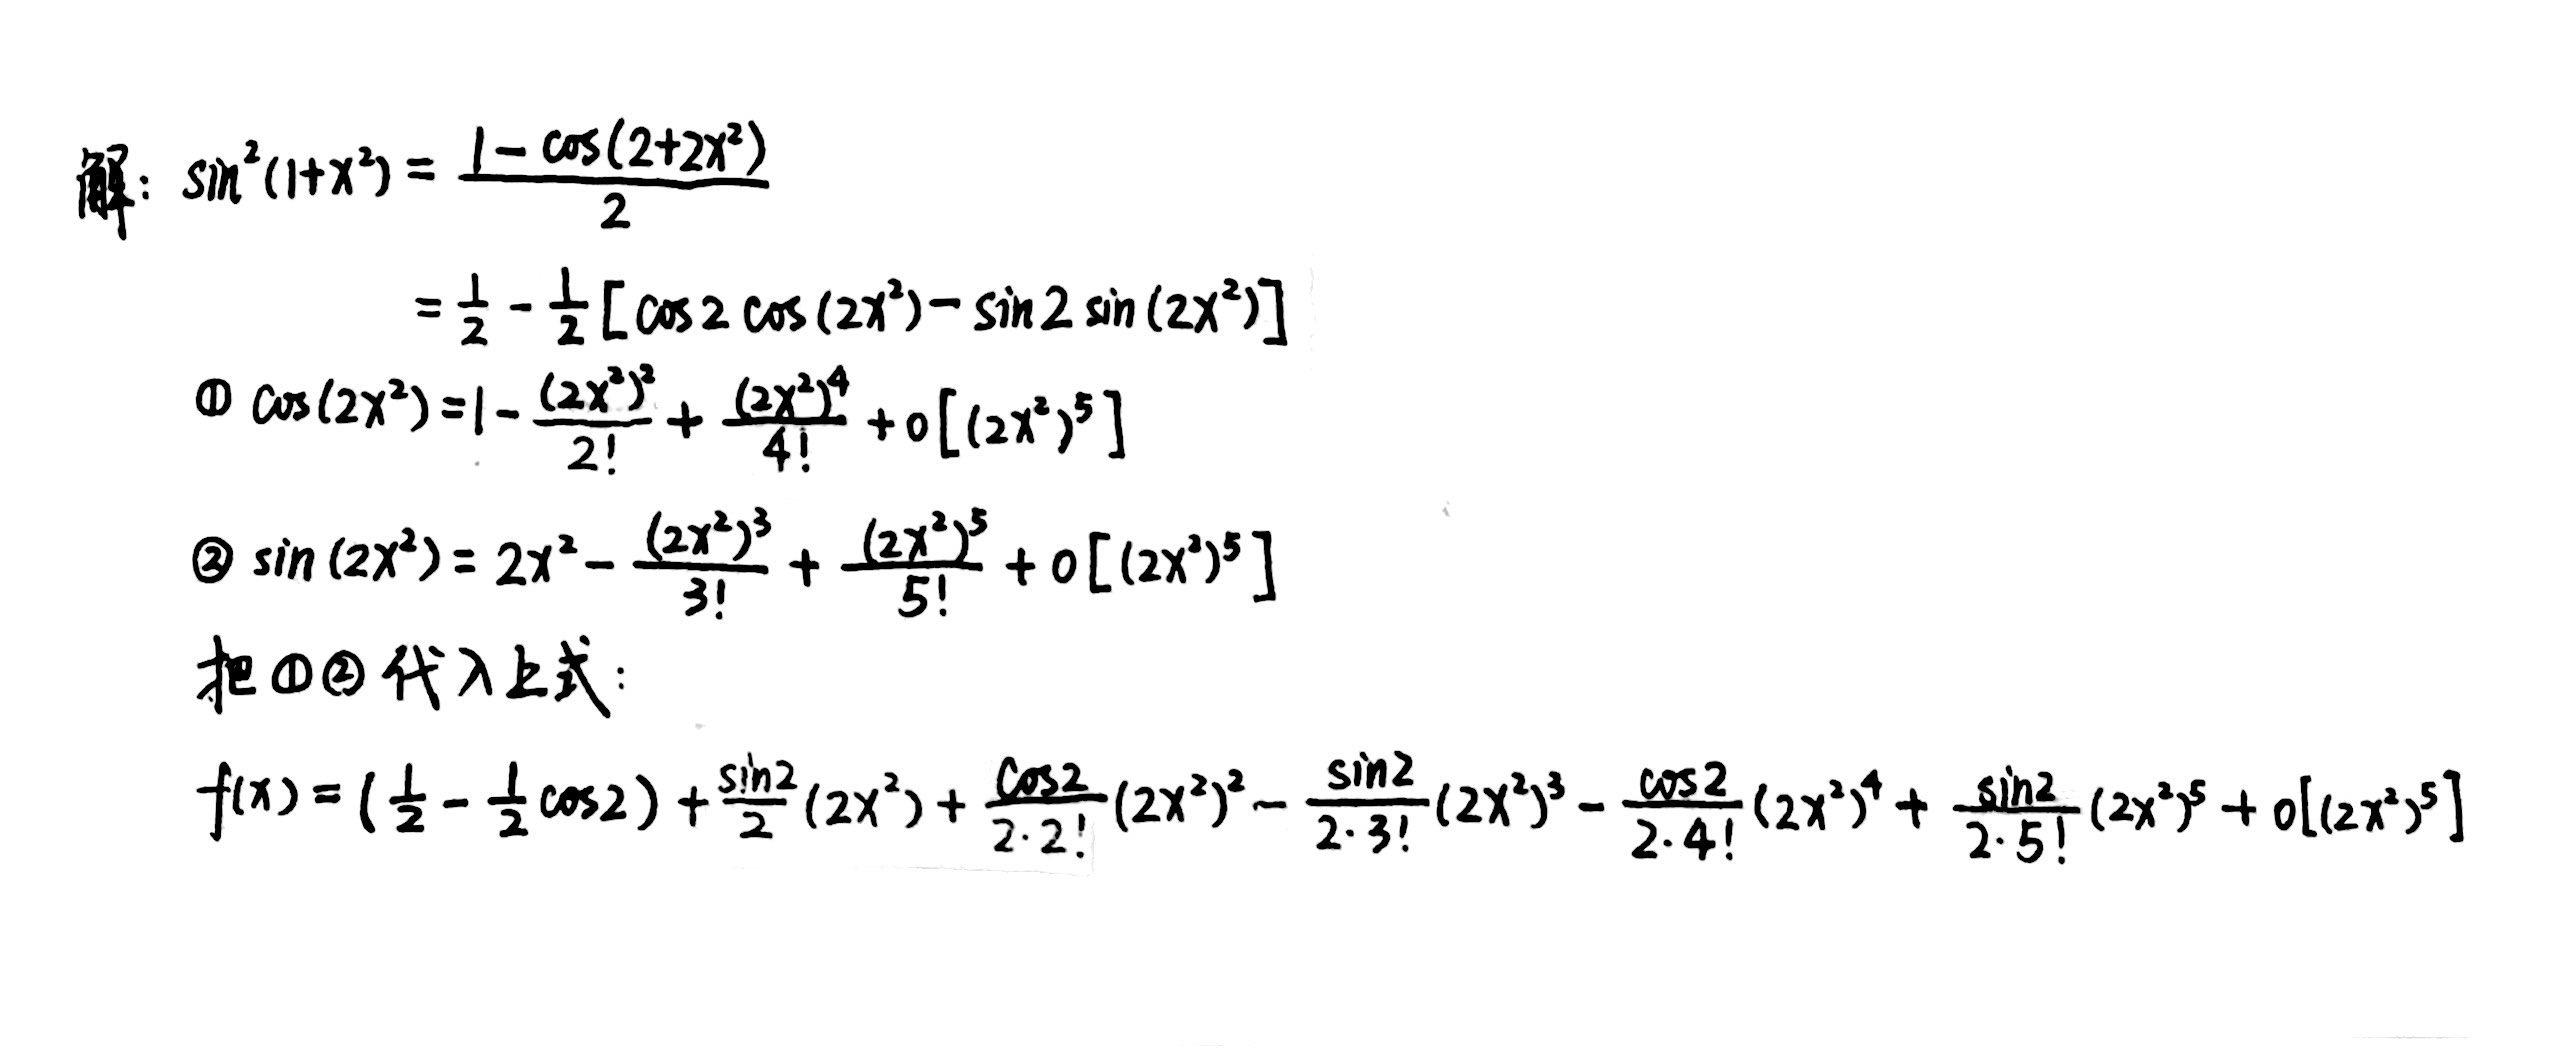 解: sin²(1+x²) = \frac{1 - cos(2+2x²)}{2}
= \frac{1}{2} - \frac{1}{2} [cos2 cos(2x²) - sin2 sin(2x²)]
① cos(2x²) = 1 - \frac{(2x²)²}{2!} + \frac{(2x²)⁴}{4!} + o[(2x²)⁵]
② sin(2x²) = 2x² - \frac{(2x²)³}{3!} + \frac{(2x²)⁵}{5!} + o[(2x²)⁵]
把①②代入上式:
f(x) = (\frac{1}{2} - \frac{1}{2} cos2) + \frac{sin2}{2} (2x²) + \frac{cos2}{2·2!} (2x²)² - \frac{sin2}{2·3!} (2x²)³ - \frac{cos2}{2·4!} (2x²)⁴ + \frac{sin2}{2·5!} (2x²)⁵ + o[(2x²)⁵]